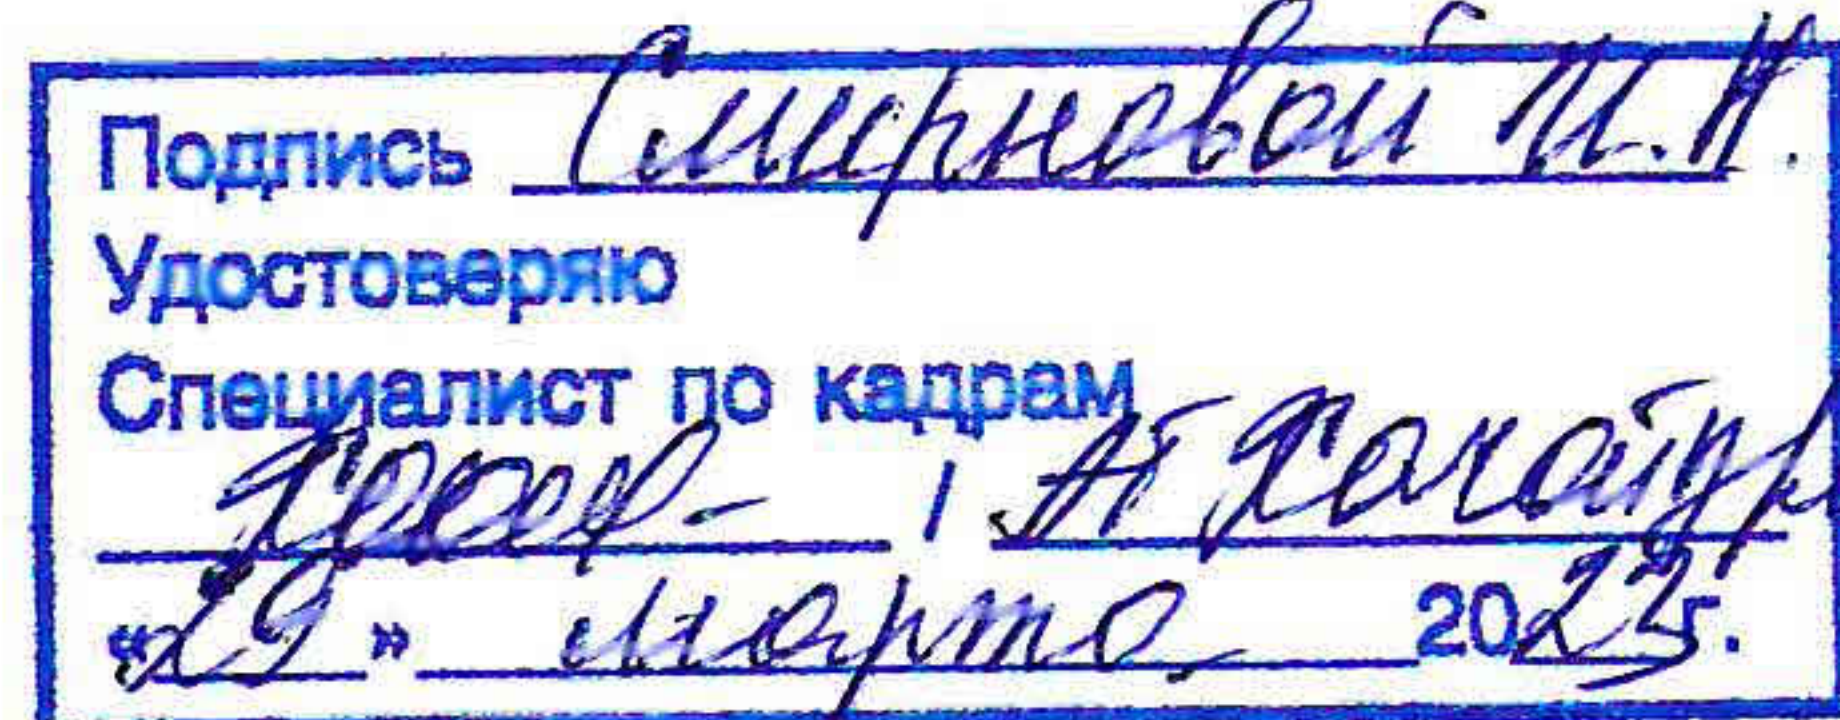 Подпись Смирновой И.Н.
Удостоверяю
Специалист по кадрам
/
«29» марта 2023г.